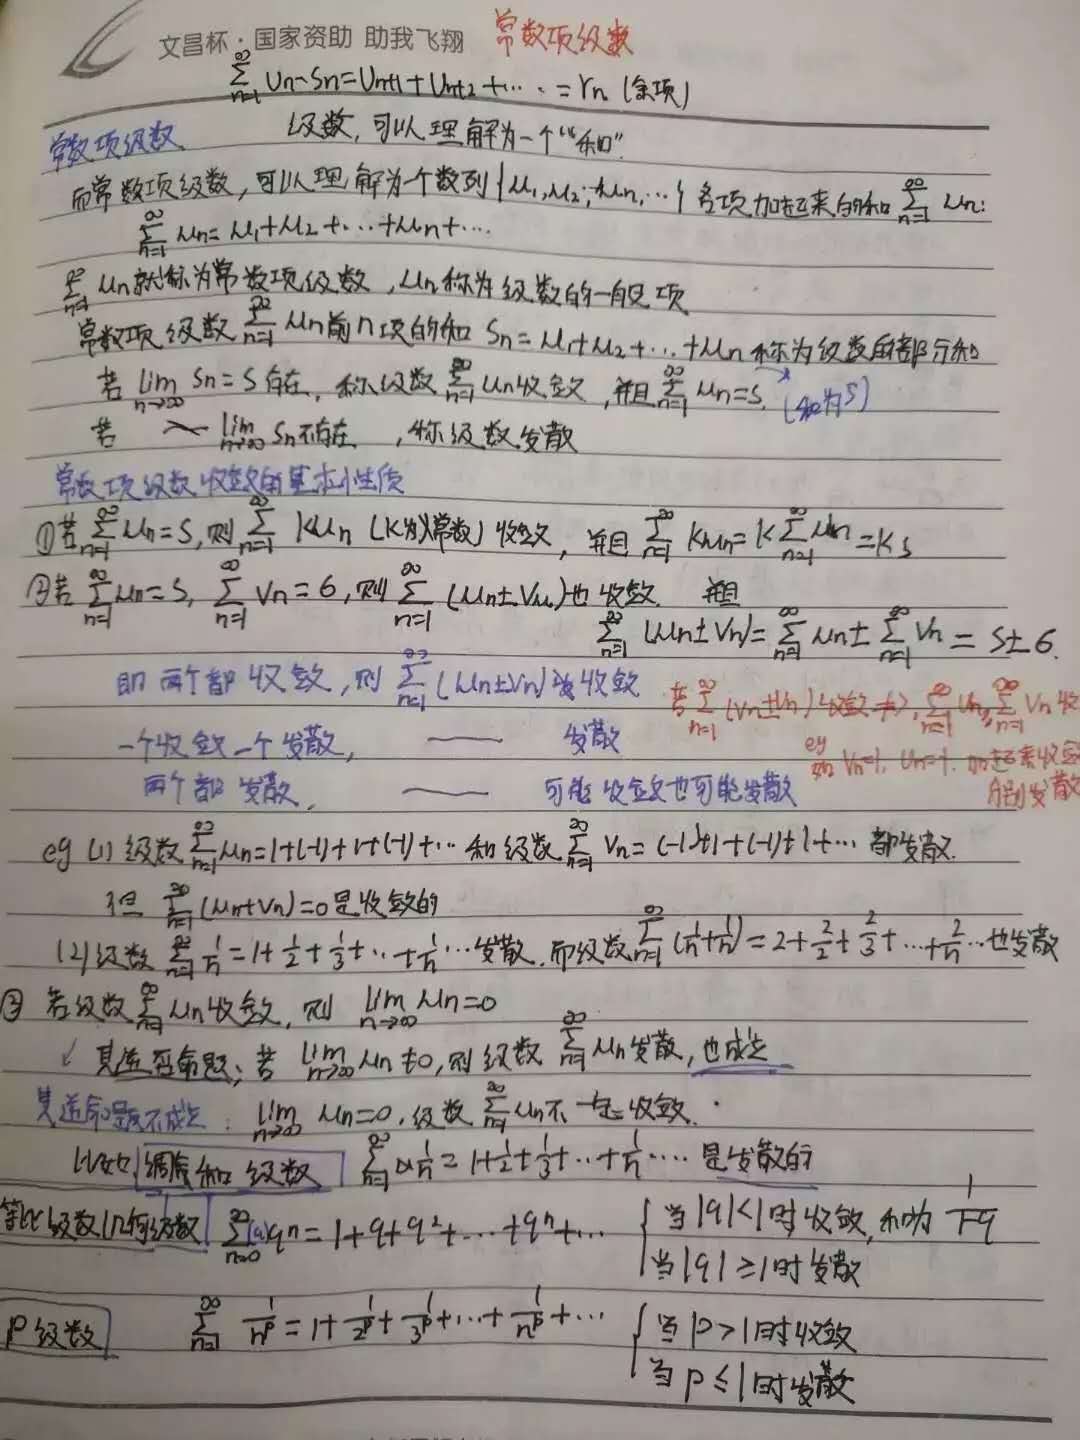 文昌杯·国家资助 助我飞翔 常数项级数
∑_{n=1}^{∞} Un-Sn=Un+1+Un+2+⋯=rn (余项)
常数项级数 级数,可以理解为一个“和”.
而常数项级数,可以理解为一个数列{u1,u2,…un,…}各项加起来的和 ∑_{n=1}^{∞} un:
∑_{n=1}^{∞} un=u1+u2+⋯+un+⋯
∑_{n=1}^{∞} un就称为常数项级数,un称为级数的一般项
常数项级数 ∑_{n=1}^{∞} un前n项的和 Sn=u1+u2+…+un 称为级数的部分和
若 lim_{n→∞} Sn=S存在,称级数 ∑_{n=1}^{∞} un收敛,并且 ∑_{n=1}^{∞} un=S. (和为S)
若 lim_{n→∞} Sn不存在,称级数发散
常数项级数收敛的基本性质
①若 ∑_{n=1}^{∞} un=S,则 ∑_{n=1}^{∞} kun (k为常数) 收敛,并且 ∑_{n=1}^{∞} kun=k∑_{n=1}^{∞} un=ks
②若 ∑_{n=1}^{∞} un=S, ∑_{n=1}^{∞} Vn=6,则 ∑_{n=1}^{∞} (un±Vn)也收敛. 并且
∑_{n=1}^{∞} (un±Vn)=∑_{n=1}^{∞} un±∑_{n=1}^{∞} Vn=S±6.
即两个都收敛,则 ∑_{n=1}^{∞} (un±Vn) 收敛
若 ∑_{n=1}^{∞} (Vn±Un)收敛≠>, ∑_{n=1}^{∞} Un, ∑_{n=1}^{∞} Vn 收
一个收敛一个发散, —— 发散
eg Vn=1, Un=-1. 加起来收敛
两个都发散, —— 可能收敛也可能发散
分别发散
eg (1) 级数 ∑_{n=1}^{∞} un=1+(-1)+1+(-1)+⋯ 和级数 ∑_{n=1}^{∞} Vn=(-1)+1+(-1)+1+⋯ 都发散.
但 ∑_{n=1}^{∞} (un+Vn)=0是收敛的
(2)级数 ∑_{n=1}^{∞} 1/n=1+1/2+1/3+⋯+1/n⋯发散.而级数 ∑_{n=1}^{∞} (1/n+1/n)=2+2/2+2/3+⋯+2/n⋯也发散
③ 若级数 ∑_{n=1}^{∞} un收敛,则 lim_{n→∞} un=0
✓ 其逆否命题:若 lim_{n→∞} un≠0,则级数 ∑_{n=1}^{∞} un发散,也成立
其逆命题不成立: lim_{n→∞} un=0,级数 ∑_{n=1}^{∞} un不一定收敛.
比如 调和级数 ∑_{n=1}^{∞} 1/n=1+1/2+1/3+⋯+1/n⋯ 是发散的
等比级数(几何级数) ∑_{n=0}^{∞} (a)q^n=1+q+q²+⋯+q^n+⋯ { 当|q|<1时收敛,和为 1/(1-q)
当|q|≥1时发散
P级数 ∑_{n=1}^{∞} 1/n^p=1+1/2^p+1/3^p+⋯+1/n^p+⋯ { 当P>1时收敛
当P≤1时发散